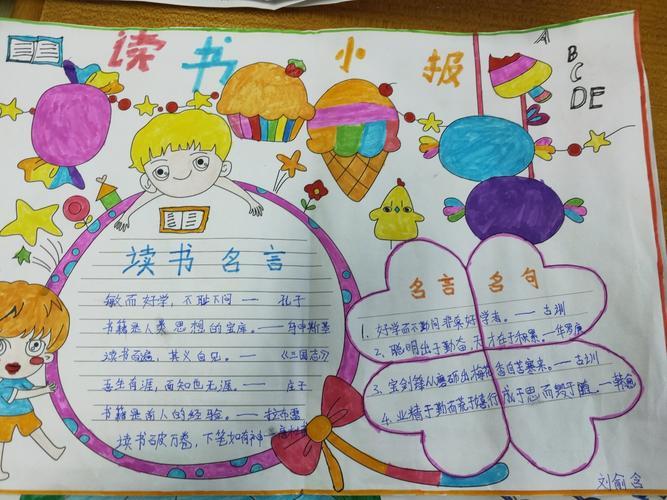 读书小报
A
B
C
DE
读书名言
敏而好学，不耻下问 — 孔子
书籍是人类思想的宝库。—
读书百遍，其义自见。— 《三国志》
吾生有涯，而知也无涯。— 庄子
书籍是前人的经验。—
读书破万卷，下笔如有神 —
名言名句
1、好学而不勤问非真好学者。— 古训
2、聪明出于勤奋，天才在于积累。— 华罗庚
3、宝剑锋从磨砺出，梅花香自苦寒来。— 古训
4、业精于勤而荒于嬉，行成于思而毁于随。— 韩愈
刘俞含